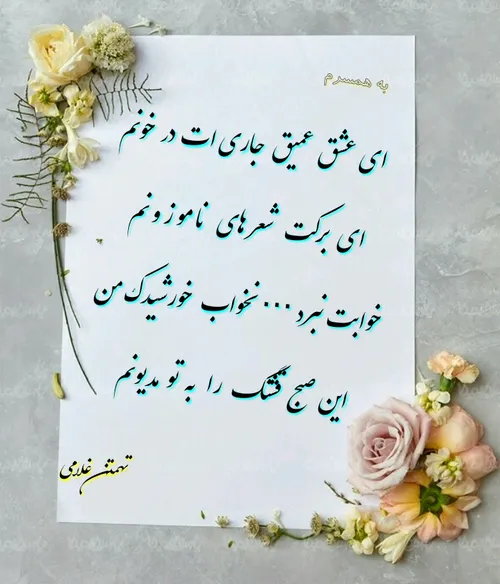 به همسرم
ای عشق عمیق جاری ات در خونم
ای برکت شعرهای ناموزونم
خوابت نبرد ... نخواب خورشیدک من
این صبح قشنگ را به تو مدیونم
تهمتن غلامی